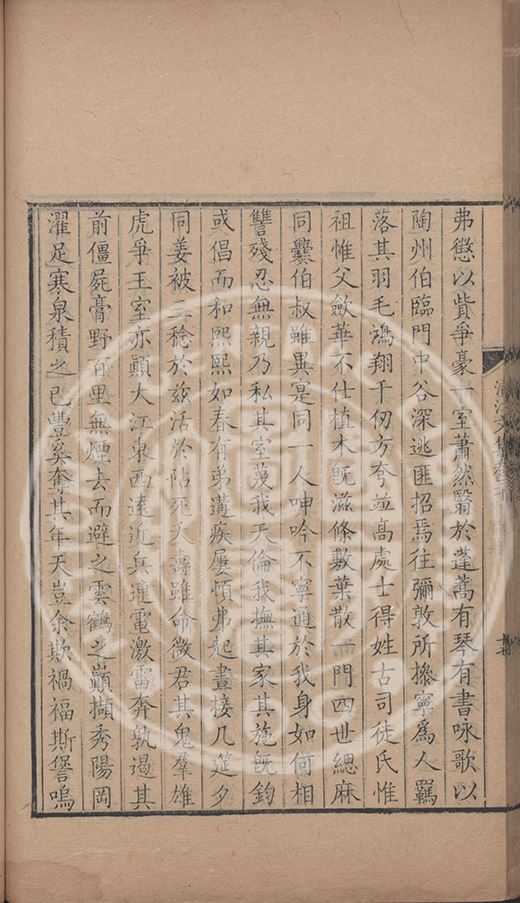 弗懲以貲爭豪一室蕭然翳於蓬蒿有琴有書咏歌以
陶州伯臨門中谷深逃匪招焉往彌敦所操寧爲人羈
落其羽毛鴻翔千仞方夸竝高處士得姓古司徒氏惟
祖惟父歛華不仕植木旣滋條敷葉散一門四世緦麻
同爨伯叔雖異寔同一人呻吟不寧通於我身如何相
讐殘忍無親乃私其室蔑我天倫我撫其家其施旣鈞
或倡而和熙熙如春有弟遘疾屢頓弗起晝接几筵夕
同姜被三稔於兹活於阽死夭壽雖命微君其鬼羣雄
虎爭王室亦顚大江東西遠近兵連電激雷奔孰遏其
前僵屍膏野百里無煙去而避之雲鶴之巔擷秀陽岡
濯足寒泉積之已豐奚奪其年天豈余欺禍福斯僣嗚